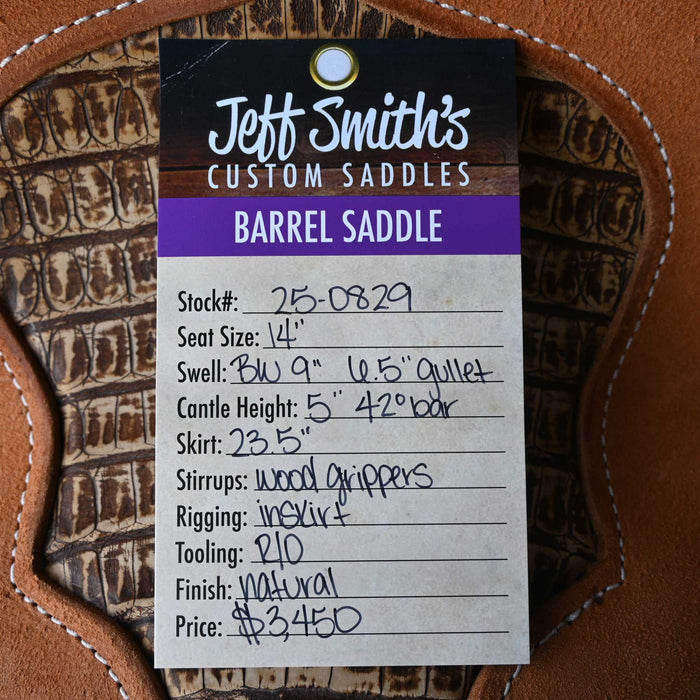 Jeff Smith's
CUSTOM SADDLES
BARREL SADDLE
Stock#: 25-0829
Seat Size: 14"
Swell: BW 9" 6.5" gullet
Cantle Height: 5" 42° bar
Skirt: 23.5"
Stirrups: wood grippers
Rigging: inskirt
Tooling: R/O
Finish: natural
Price: $3,450